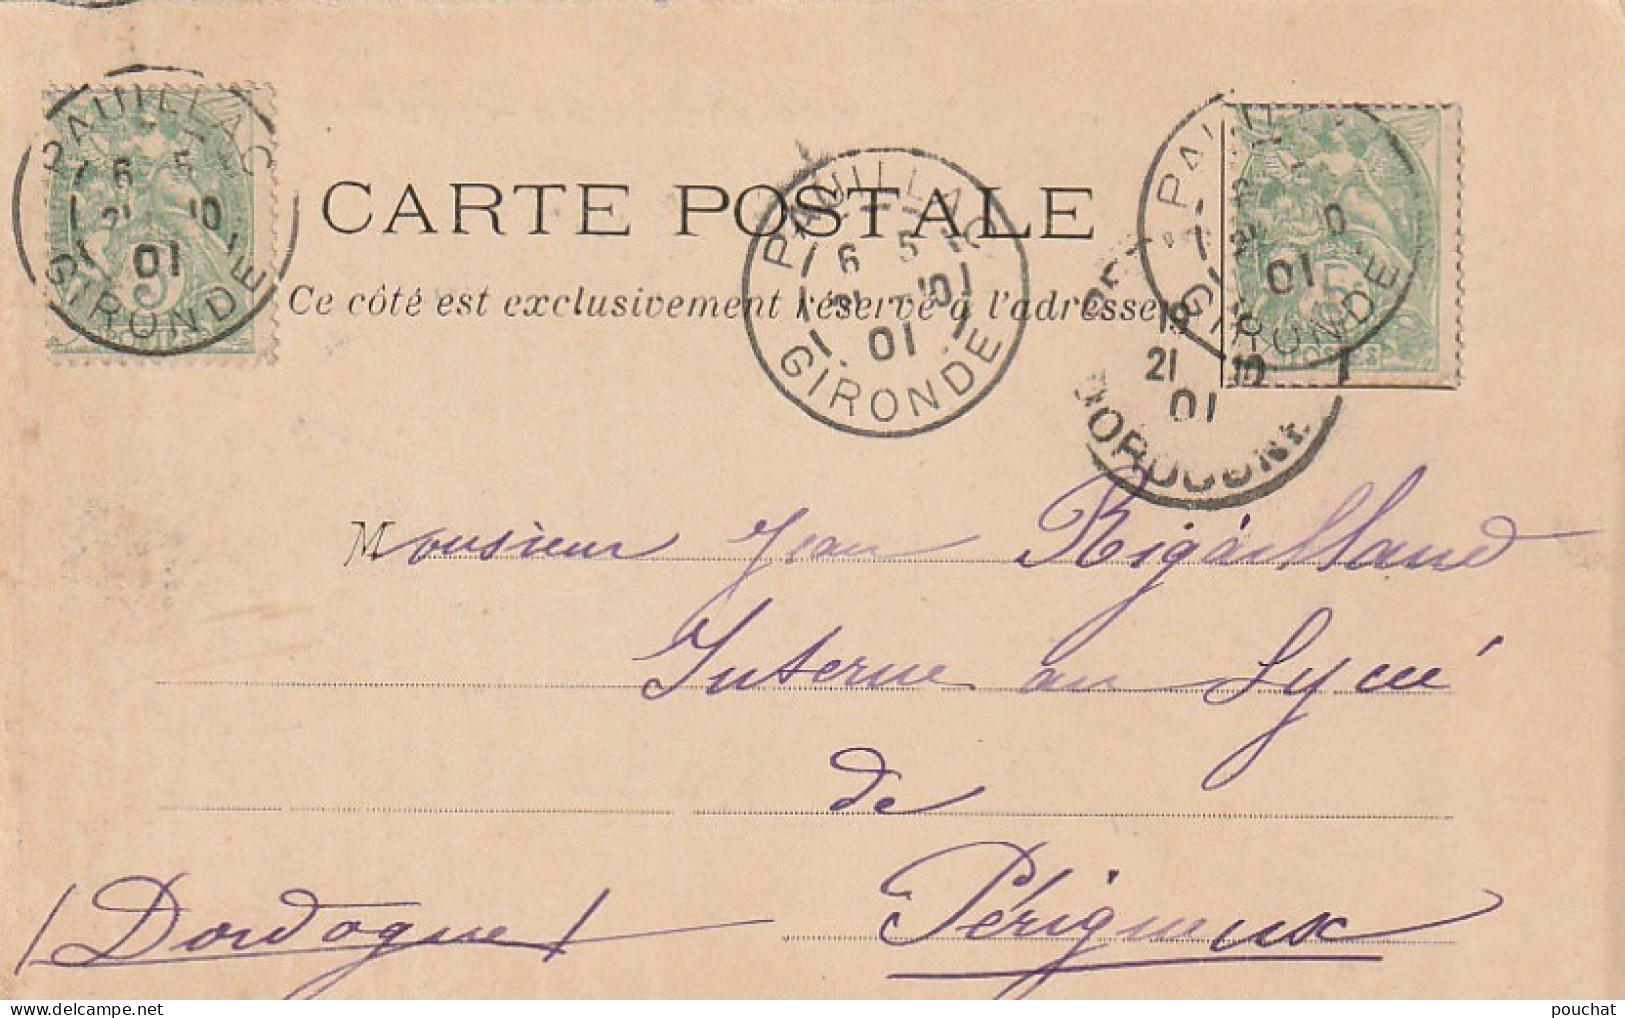 PAUILLAC
6 5
21 10
01
GIRONDE
CARTE POSTALE
Ce côté est exclusivement réservé à l'adresse
PAUILLAC
6 5
21 10
01
GIRONDE
5
01
GIRONDE
POSTES
21 10
01
DORDOGNE
Monsieur Jean Rigaillaud
Interne au Lycée
de
Périgueux
(Dordogne)
pouchat